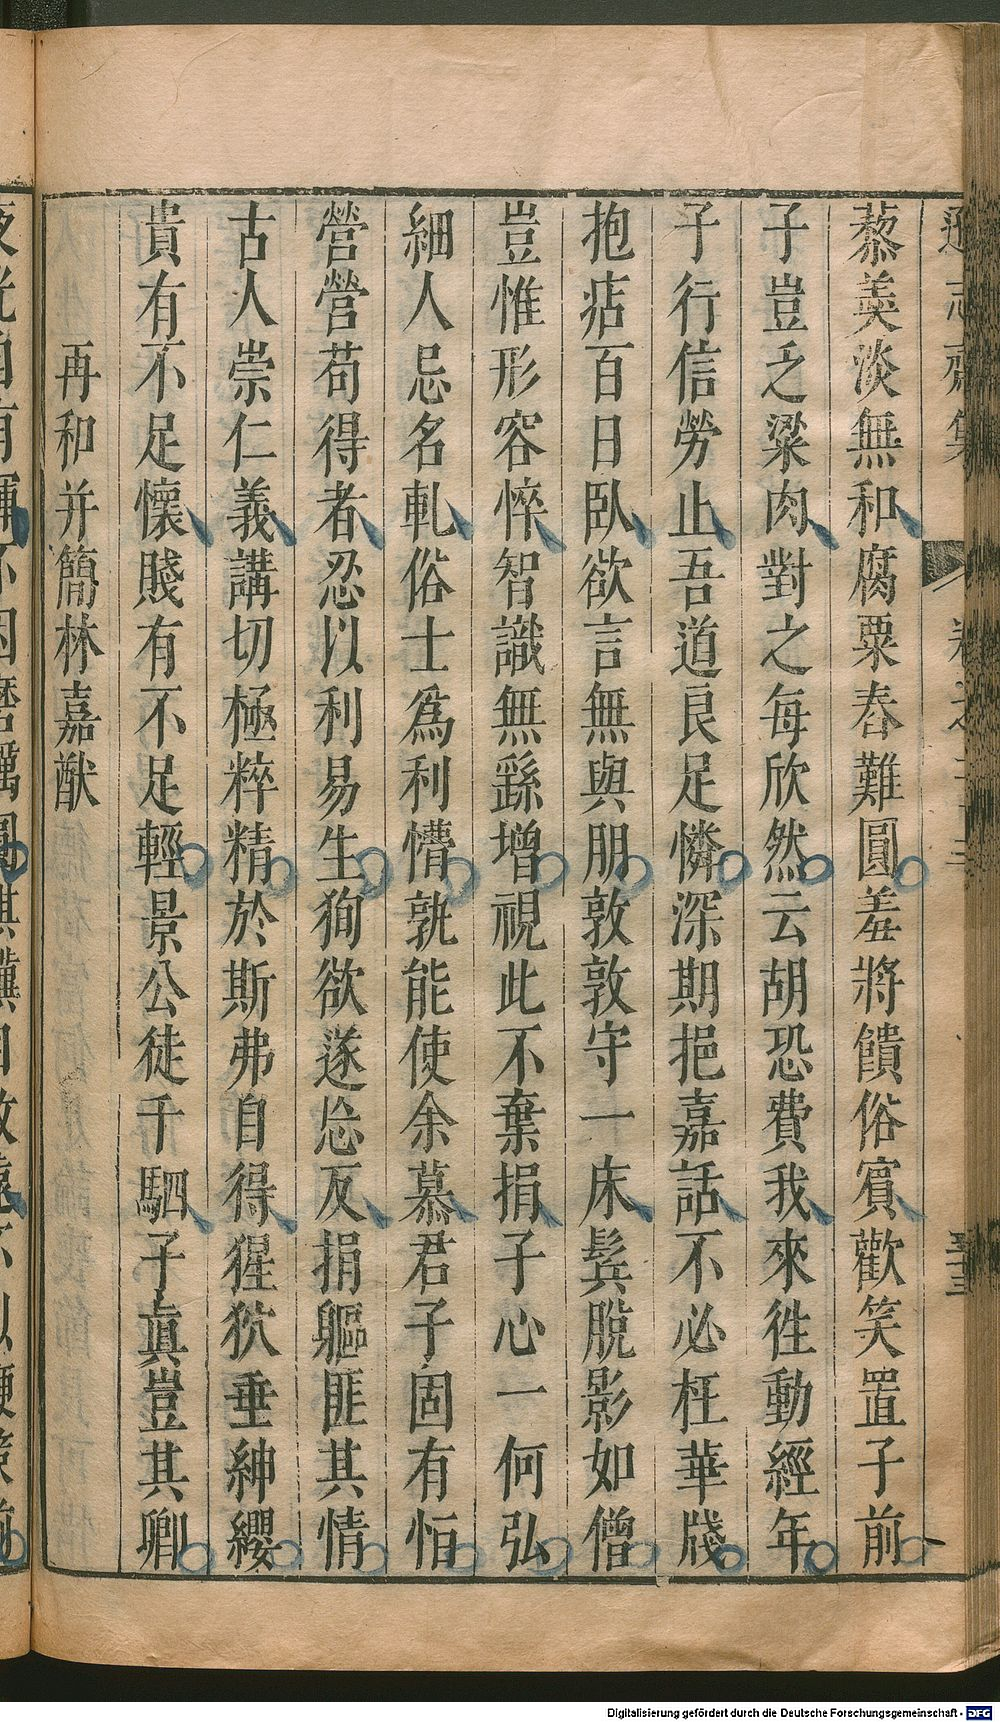 遜志齋集 卷之二十三
藜羮淡無和腐粟舂難圓羞將饋俗賓歡笑置子前
子豈乏粱肉對之每欣然云胡恐費我來徃動經年
子行信勞止吾道良足憐深期挹嘉話不必枉華牋
抱痁百日臥欲言無與朋敦敦守一床鬂脫影如僧
豈惟形容悴智識無繇增視此不棄捐子心一何弘
細人忌名軋俗士爲利懵孰能使余慕君子固有恒
營營苟得者忍以利易生狥欲遂忩反捐軀匪其情
古人崇仁義講切極粹精於斯弗自得猩狄垂紳纓
貴有不足懷賤有不足輕景公徒千駟子眞豈其卿
再和并簡林嘉猷
Digitalisierung gefördert durch die Deutsche Forschungsgemeinschaft - DFG